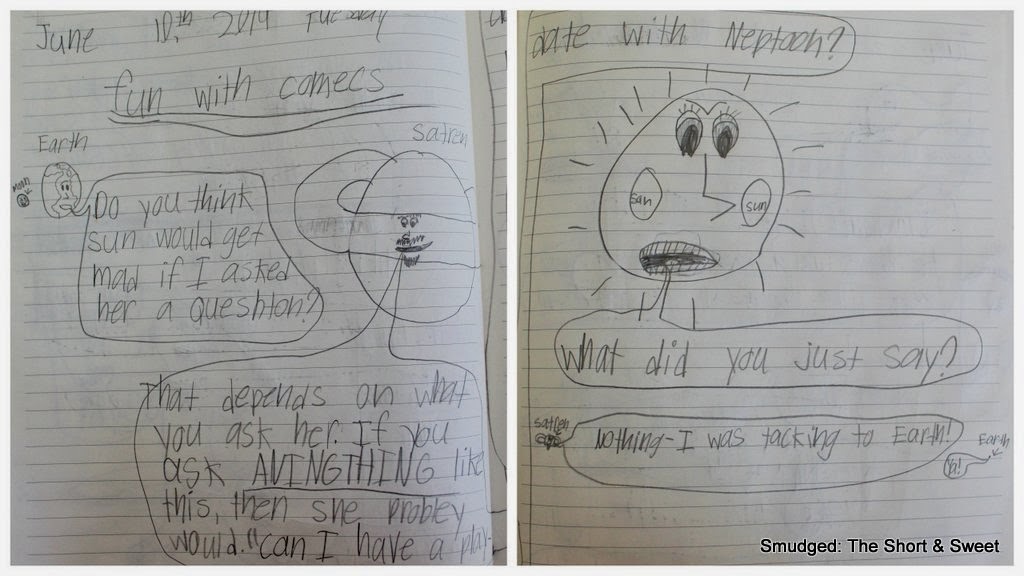 June 10th, 2014 Tuesday
fun with comecs
Earth
Satren
moon
Do you think
sun would get
mad if I asked
her a queshton?
That depends on what
you ask her. If you
ask AVINGTHING like
this, then she probley
would. "can I have a play-
date with Neptoon?
san
sun
What did you just say?
satren
Nothing-I was tacking to Earth!
Earth
Ya!
Smudged: The Short & Sweet